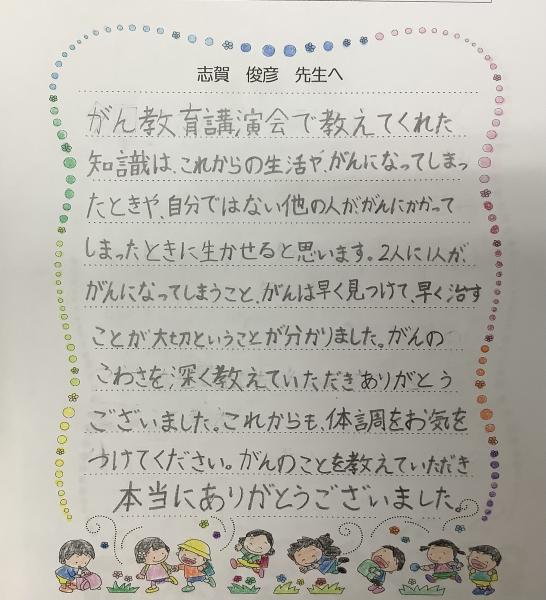 志賀 俊彦 先生へ
がん教育講演会で教えてくれた
知識は、これからの生活や、がんになってしまっ
たときや、自分ではない他の人が、がんにかかって
しまったときに生かせると思います。2人に1人が、
がんになってしまうこと、がんは早く見つけて、早く治す
ことが大切ということが分かりました。がんの
こわさを深く教えていただきありがとう
ございました。これからも、体調をお気を
つけてください。がんのことを教えていただき
本当にありがとうございました。